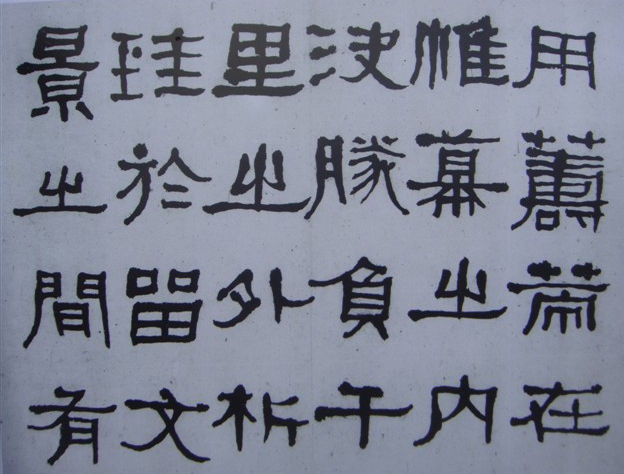 用籌策在
帷幕之内
決勝負千
里之外析
珪於留文
景之間有